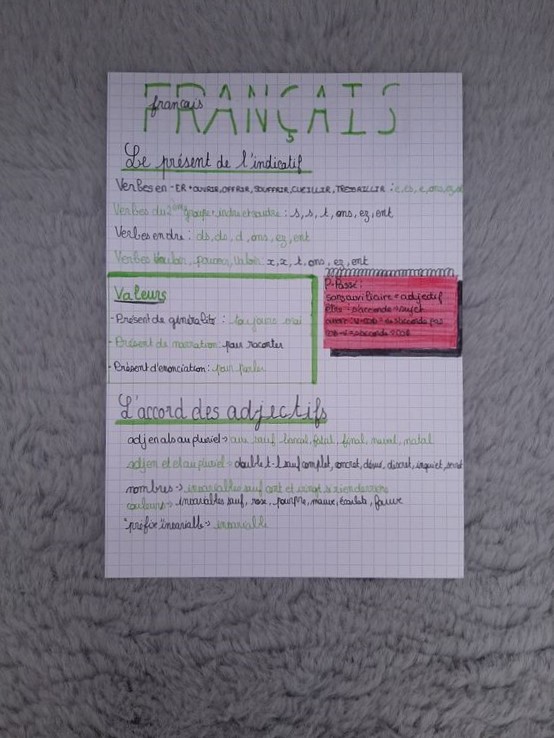 FRANÇAIS
français
Le présent de l'indicatif
Verbes en -ER + OUVRIR, OFFRIR, SOUFFRIR, CUEILLIR, TRESSAILLIR : e, es, e, ons, ez,
Verbes du 2ème groupe + indre et soudre : s, s, t, ons, ez, ent
Verbes en dre : ds, ds, d, ons, ez, ent
Verbes Vouloir, pouvoir, Valoir : x, x, t, ons, ez, ent
Valeurs
- Présent de généralité : toujours vrai
- Présent de narration : pour raconter
- Présent d'énonciation : pour parler
P. Passé :
sans auxiliaire = adjectif
être → s'accorde → sujet
avoir : V-COD = s'accorde pas
COD-V → s'accorde COD
L'accord des adjectifs
adj en al → au pluriel → aux sauf banal, fatal, final, naval, natal
adj en et el au pluriel → double t-l sauf complet, concret, désuet, discret, inquiet, secret
nombres → invariables sauf cent et vingt si rien derrière
couleurs → invariables sauf, rose, pourpre, mauve, écarlate, fauve
"préfixe" invariable → invariable